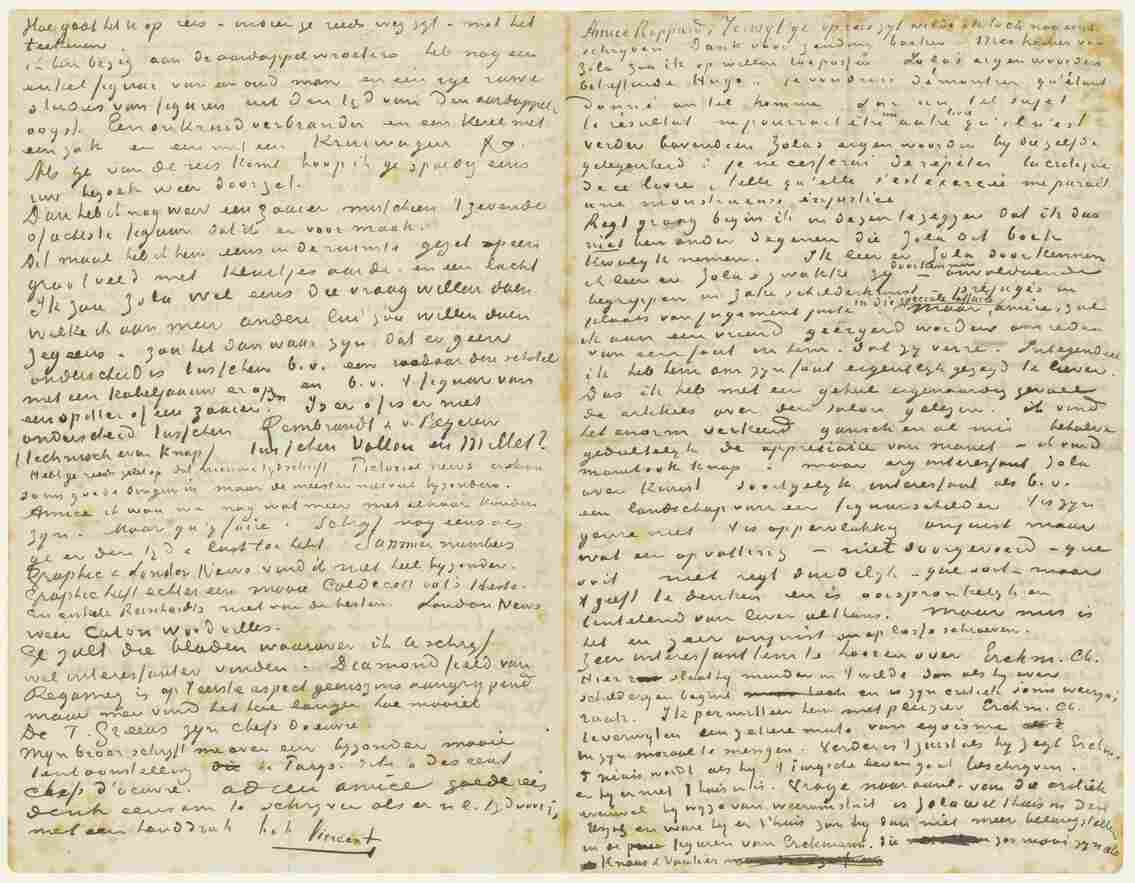 Hoe gaat het U op reis – indien ge reeds weg zyt – met het
teekenen
ik ben bezig aan de aardappelwroeters heb nog een
enkel figuur van een oud man en eenige ruwe
studies van figuren uit den tyd van den aardappel
oogst. Een onkruidverbrander en een kerel met
een zak en een met een Kruiwagen &c.
Als ge van de reis komt hoop ik ge spoedig eens
uw bezoek weer doorzet.
Dan heb ik nog weer een zaaier misschien 't zevende
of achtste figuur dat ik er voor maak.
Dit maal heb ik hem eens in de ruimte gezet op een
groot veld met kluitjes aarde. en een lucht
Ik zou Zola wel eens die vraag willen doen
welke ik aan meer andere lui zou willen doen
zeg eens – zou het dan waar zyn dat er geen
onderscheid is tusschen b.v. een rood aarden schotel
met een Kabeljaauw er op en b.v. 't figuur van
een spitter of een zaaier? Is er of is er niet
onderscheid tusschen Rembrandt & v. Beyeren
(technisch even knap) tusschen Vollon en Millet?
Hebt ge reeds gelet op dat nieuwe tydschrift Pictorial news er staan
soms goede dingen in maar de meesten niet veel byzonders.
Amice ik wou we nog wat meer met elkaar konden
zyn. Maar qu'y faire. Schryf nog eens als
ge er den tyd & lust toe hebt. Summer numbers
Graphic & London News vond ik niet heel byzonder.
Graphic heeft echter een mooie Caldecott
en enkele Reinhardts niet van de besten. London News
weer Caton Woodvilles.
Ge zult die bladen waarover ik U schryf
wel interessanter vinden. Diamond field van
Regamey is op 't eerste aspect geenszins aangrypend
maar men vind het hoe langer hoe mooier
De T. Greens zyn chefs doeuvre.
Myn broer schryft me over een byzonder mooie
tentoonstelling te Parys. des Cent
chefs d'oeuvre. adieu amice goede reis
denk eens om te schryven als er U e. tyd voor is,
met een handdruk
Vincent
Amice Rappard, Terwyl ge op reis zyt wilde ik toch nog eens
schryven Dank voor zending boeken
Zola zou ik op willen toepassen Zolas eigen woorden
betreffende Hugo. "je voudrais démontrer qu'étant
donné un tel homme sur un tel sujet
le résultat ne pourrait être un autre livre qu'il n'est
verder bovendien Zolas eigen woorden by dezelfde
gelegenheid: je ne cesserai de répéter la critique
de ce livre, telle qu'elle s'est exercée me parait
une monstrueuse injustice
Regt graag begin ik in dezen te zeggen dat ik dus
niet ben onder degenen die Zola dit boek
kwalyk nemen. Ik leer er Zola door kennen
ik leer er Zolas zwakke zy doorkennen – onvoldoende
begrippen in zake schilderkunst préjugés in
plaats van jugement juste in die speciale affaire. Maar, amice, zal
ik aan een vriend geërgerd worden om reden
van een fout in hem. Dat zy verre. Integendeel
ik heb hem om zyn fout eigentlyk gezegd te liever.
Dus ik heb met een geheel eigenaardig gevoel
de artikels over den salon gelezen. ik vind
het enorm verkeerd gansch en al mis behalve
gedeeltelyk de appreciatie van Manet – ik vind
Manet ook knap: maar erg interessant, Zola
over Kunst soortgelyk interessant als b.v.
een landschap van een figuurschilder 't is zyn
genre niet 't is oppervlakkig onjuist maar
wat een opvatting – niet doorgevoerd – que
soit niet regt duidelyk – que soit – maar
't geeft te denken en is oorspronkelyk en
tintelend van leven althans. Maar mis is
het en zeer onjuist en op losse schroeven.
Zeer interessant hem te hooren over Erckm. Ch.
Hier slaat hy minder in 't wilde dan als hy over
schilderyen begint en is zyn critiek soms weergaasch
raak. Ik permitteer hem met pleizier Erckm. Ch.
te verwyten een zekere mate van egoisme
in zyn moraal te mengen. Verder is 't juist als hy zegt Erckm.
't niais wordt als hy 't Parysche leven gaat beschryven.
er hy er niet t'huis in is. Vrage naar aanl. van die critiek
by wyze van weeromstuit is Zola wel thuis in den
Elzas en ware hy er t'huis zou hy dan niet meer belangstellen
in de figuren van Erckmann. die zoo mooi zyn als
Knaus & Vautier